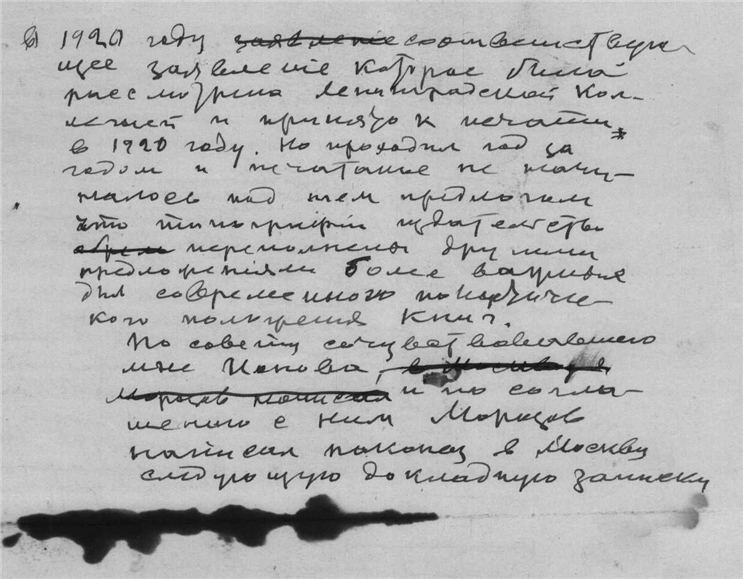 в 1920 году заявление соответствую-
щее заявление которое было
рассмотрена Ленинградской Кол-
легией и принято к печати *
в 1920 году. Но проходил год за
годом и печатанье не начи-
налось под тем предлогом
что типографии издательства
переполнены другими
предложениями более важными
для современного
кого положения книг.
По совету сочувствовавшего
мне Ионова,
Морозов написал и по согла-
шению с ним Морозов
написал наконец в Москву
следующую докладную записку